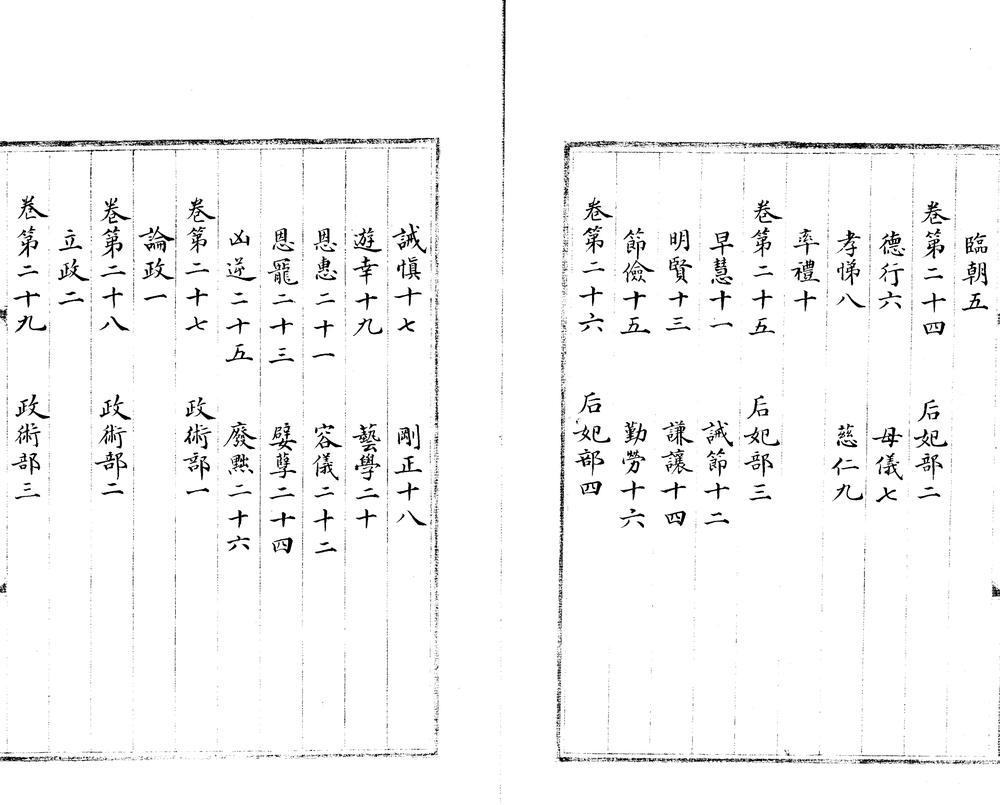 臨朝五
卷第二十四　后妃部二
德行六　母儀七
孝悌八　慈仁九
率禮十
卷第二十五　后妃部三
早慧十一　誡節十二
明賢十三　謙讓十四
節儉十五　勤勞十六
卷第二十六　后妃部四
誡慎十七　剛正十八
遊幸十九　藝學二十
恩惠二十一　容儀二十二
恩寵二十三　嬖孽二十四
凶逆二十五　廢黜二十六
卷第二十七　政術部一
論政一
卷第二十八　政術部二
立政二
卷第二十九　政術部三